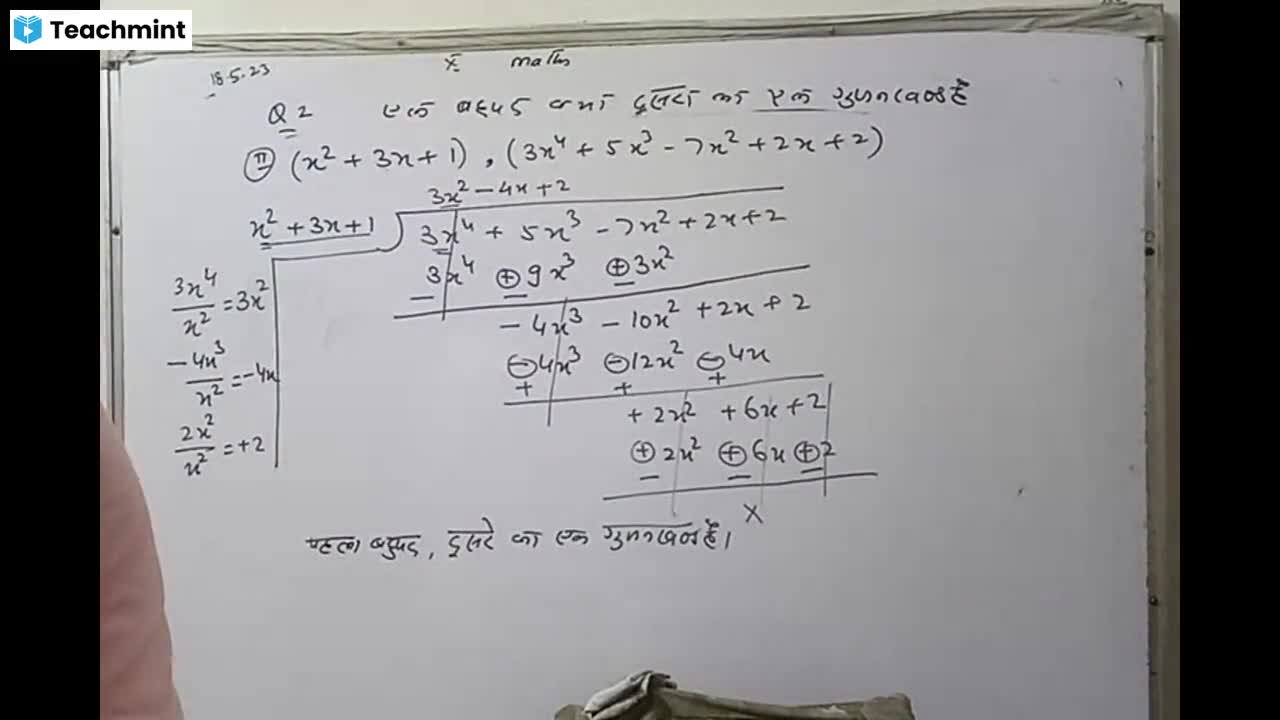 Teachmint
18.5.23
X maths
Q 2 एक बहुपद क्या दूसरा का एक गुणनखण्ड है
(ii) (x² + 3x + 1) , (3x⁴ + 5x³ - 7x² + 2x + 2)
3x² - 4x + 2
x² + 3x + 1 3x⁴ + 5x³ - 7x² + 2x + 2
3x⁴ ⊕ 9x³ ⊕ 3x²
- - -
3x⁴/x² = 3x²
- 4x³ - 10x² + 2x + 2
-4x³/x² = -4x
⊖ 4x³ ⊖ 12x² ⊖ 4x
+ + +
+ 2x² + 6x + 2
2x²/x² = +2
⊕ 2x² ⊕ 6x ⊕ 2
- - -
X
पहला बहुपद, दूसरे का एक गुणनखण्ड है।